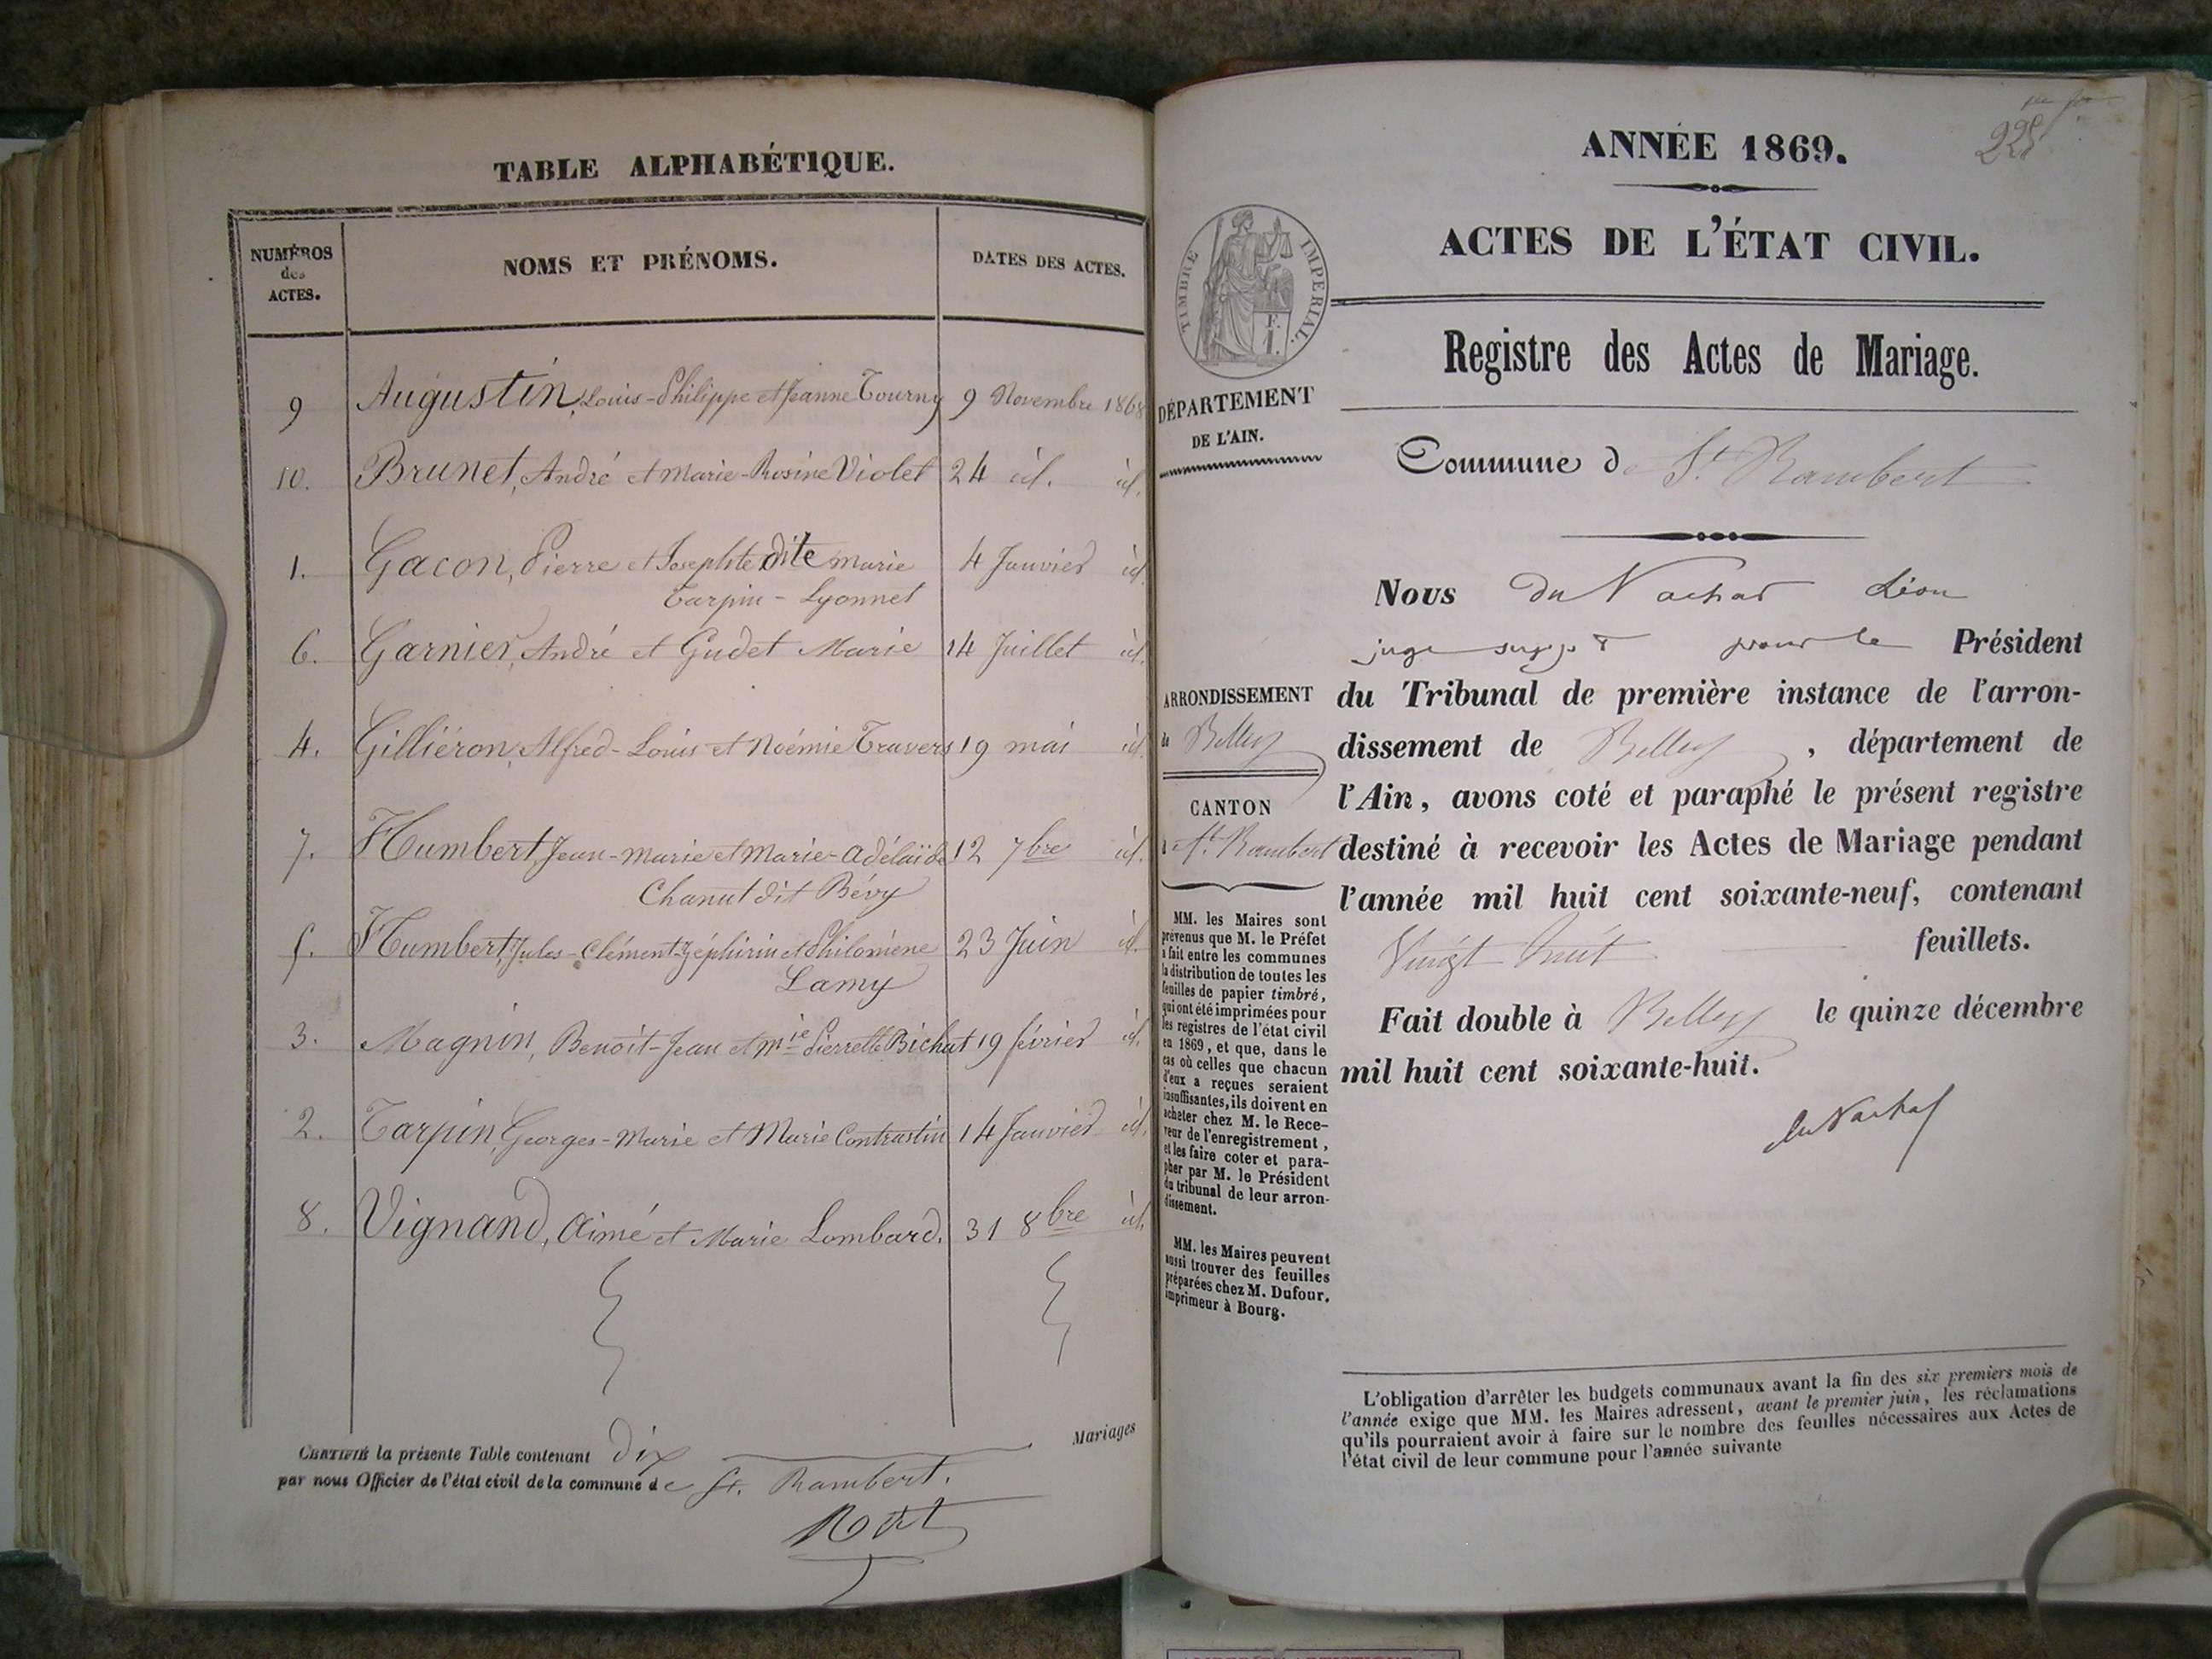 TABLE ALPHABÉTIQUE.
NUMÉROS
des
ACTES.
NOMS ET PRÉNOMS.
DATES DES ACTES.
9 Augustin, Louis-Philippe et Jeanne Tourny 9 Novembre 1868
10. Brunet, André et Marie-Rosine Violet 24 id. id.
1. Gacon, Pierre et Josephte dite Marie 4 Janvier id.
Tarpin-Lyonnet
6. Garnier, André et Gudet Marie 14 Juillet id.
4. Gilliéron, Alfred-Louis et Noémie Travers 19 mai id.
7. Humbert, Jean-Marie et Marie-Adélaïde 12 7bre id.
Chanut dit Bévy
5. Humbert, Jules-Clément-Zéphirin et Philomène 23 Juin id.
Lamy
3. Magnin, Benoit-Jean et Mie Pierrette Bichat 19 février id.
2. Tarpin, Georges-Marie et Marie Contrastin 14 Janvier id.
8. Vignand, Aimé et Marie Lombard. 31 8bre id.
CERTIFIÉ la présente Table contenant dix Mariages
par nous Officier de l'état civil de la commune de St. Rambert.
228
ANNÉE 1869.
ACTES DE L'ÉTAT CIVIL.
TIMBRE IMPÉRIAL.
Registre des Actes de Mariage.
DÉPARTEMENT
DE L'AIN.
Commune de St. Rambert
Nous du Nachat Léon
juge suppt pour le Président
du Tribunal de première instance de l'arron-
dissement de Belley, département de
l'Ain, avons coté et paraphé le présent registre
destiné à recevoir les Actes de Mariage pendant
l'année mil huit cent soixante-neuf, contenant
Vingt huit feuillets.
Fait double à Belley le quinze décembre
mil huit cent soixante-huit.
du Nachat
ARRONDISSEMENT
de Belley
CANTON
St. Rambert
MM. les Maires sont
prévenus que M. le Préfet
a fait entre les communes
la distribution de toutes les
feuilles de papier timbré,
qui ont été imprimées pour
les registres de l'état civil
en 1869, et que, dans le
cas où celles que chacun
d'eux a reçues seraient
insuffisantes, ils doivent en
acheter chez M. le Rece-
veur de l'enregistrement,
et les faire coter et para-
pher par M. le Président
du tribunal de leur arron-
dissement.
MM. les Maires peuvent
aussi trouver des feuilles
préparées chez M. Dufour,
imprimeur à Bourg.
L'obligation d'arrêter les budgets communaux avant la fin des six premiers mois de
l'année exige que MM. les Maires adressent, avant le premier juin, les réclamations
qu'ils pourraient avoir à faire sur le nombre des feuilles nécessaires aux Actes de
l'état civil de leur commune pour l'année suivante